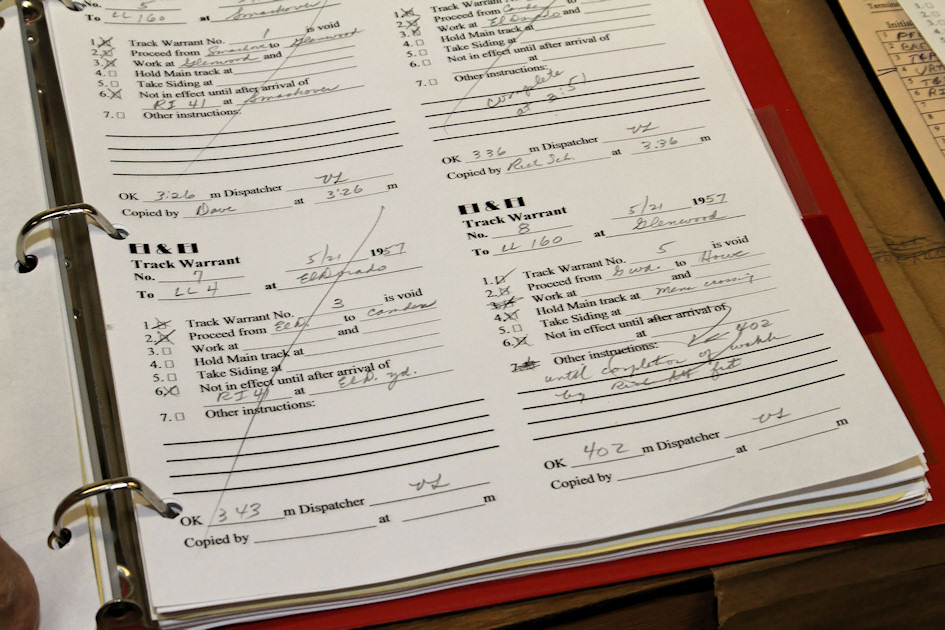 No. 5
To LL 160 at Smackover
1. Track Warrant No. 1 is void
2. Proceed from Smackover to Glenwood
3. Work at Glenwood and
4. Hold Main track at
5. Take Siding at
6. Not in effect until after arrival of
RI 41 at Smackover
7. Other instructions:
OK 3:26 m Dispatcher VL
Copied by Dave at 3:26 m
Track Warrant
1.
2. Proceed from Camden to
3. Work at El Dorado and
4. Hold Main track at
5. Take Siding at
6. Not in effect until after arrival of
at
7. Other instructions:
complete
at 3:51
OK 336 m Dispatcher VL
Copied by Rich Sch. at 3.36 m
El & El
Track Warrant
No. 7 5/21 1957
To LL 4 at El Dorado
1. Track Warrant No. 3 is void
2. Proceed from El D. to Camden
3. Work at and
4. Hold Main track at
5. Take Siding at
6. Not in effect until after arrival of
RI 41 at El D. yd.
7. Other instructions:
OK 343 m Dispatcher VL
Copied by at m
El & El
Track Warrant
No. 8 5/21 1957
To LL 160 at Glenwood
1. Track Warrant No. 5 is void
2. Proceed from Gwd. to Howe
3. Work at and
4. Hold Main track at Mena crossing
5. Take Siding at
6. Not in effect until after arrival of
at 402
7. Other instructions:
until completion of
by
OK 402 m Dispatcher VL
Copied by at m
Initial